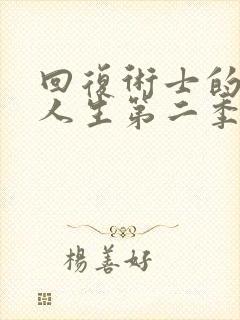 回復術士的
人生第二季
楊善好